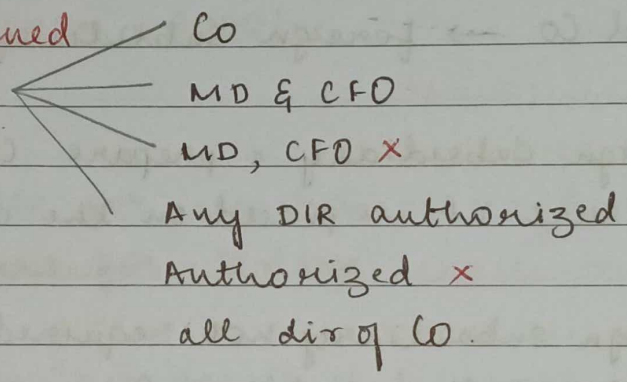 Co
MD & CFO
MD, CFO ×
Any DIR authorized
Authorized ×
all dir of Co.